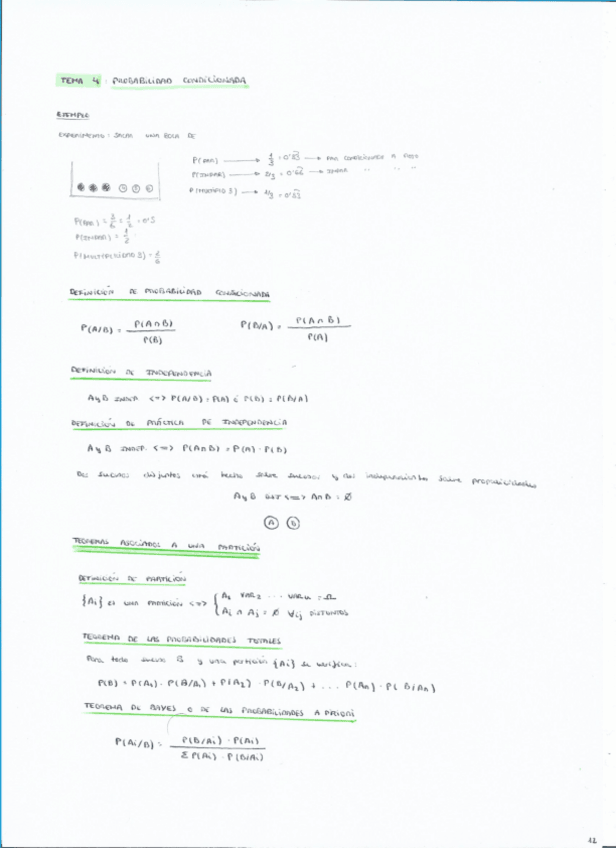 TEMA 4. PROBABILIDAD CONDICIONADA
EJEMPLO
EXPERIMENTO: SACAR UNA BOLA DE
P(PAR) → 1/3 = 0'3 → PAR CONDICIONADO A
P(IMPAR) → 2/3 = 0'6 → IMPAR " " "
P(MULTIPLO 3) → 1/3 = 0'3
P(PAR) = 3/6 = 1/2 = 0'5
P(IMPAR) = 1/2
P(MULTIPLO 3) =
DEFINICIÓN DE PROBABILIDAD CONDICIONADA
P(A/B) = P(A∩B) / P(B) P(B/A) = P(A∩B) / P(A)
DEFINICIÓN DE INDEPENDENCIA
A y B INDEP. <=> P(A/B) = P(A) ó P(B) = P(B/A)
DEFINICIÓN DE PRÁCTICA DE INDEPENDENCIA
A y B INDEP. <=> P(A∩B) = P(A) · P(B)
Dos sucesos disjuntos está hecho sobre sucesos y dos independientes sobre probabilidades
A y B <=> A∩B = Ø
A B
TEOREMAS ASOCIADOS A UNA PARTICIÓN
DEFINICIÓN DE PARTICIÓN
{Ai} es una PARTICIÓN <=> { A1 UA2 ... UAn = Ω
Ai ∩ Aj = Ø ∀ij DISTINTOS
TEOREMA DE LAS PROBABILIDADES TOTALES
Para todo suceso B y una partición {Ai} se verifica:
P(B) = P(A1) · P(B/A1) + P(A2) · P(B/A2) + ... P(An) · P(B/An)
TEOREMA DE BAYES O DE LAS PROBABILIDADES A PRIORI
P(Ai/B) = P(B/Ai) · P(Ai) / Σ P(Ai) · P(B/Ai)